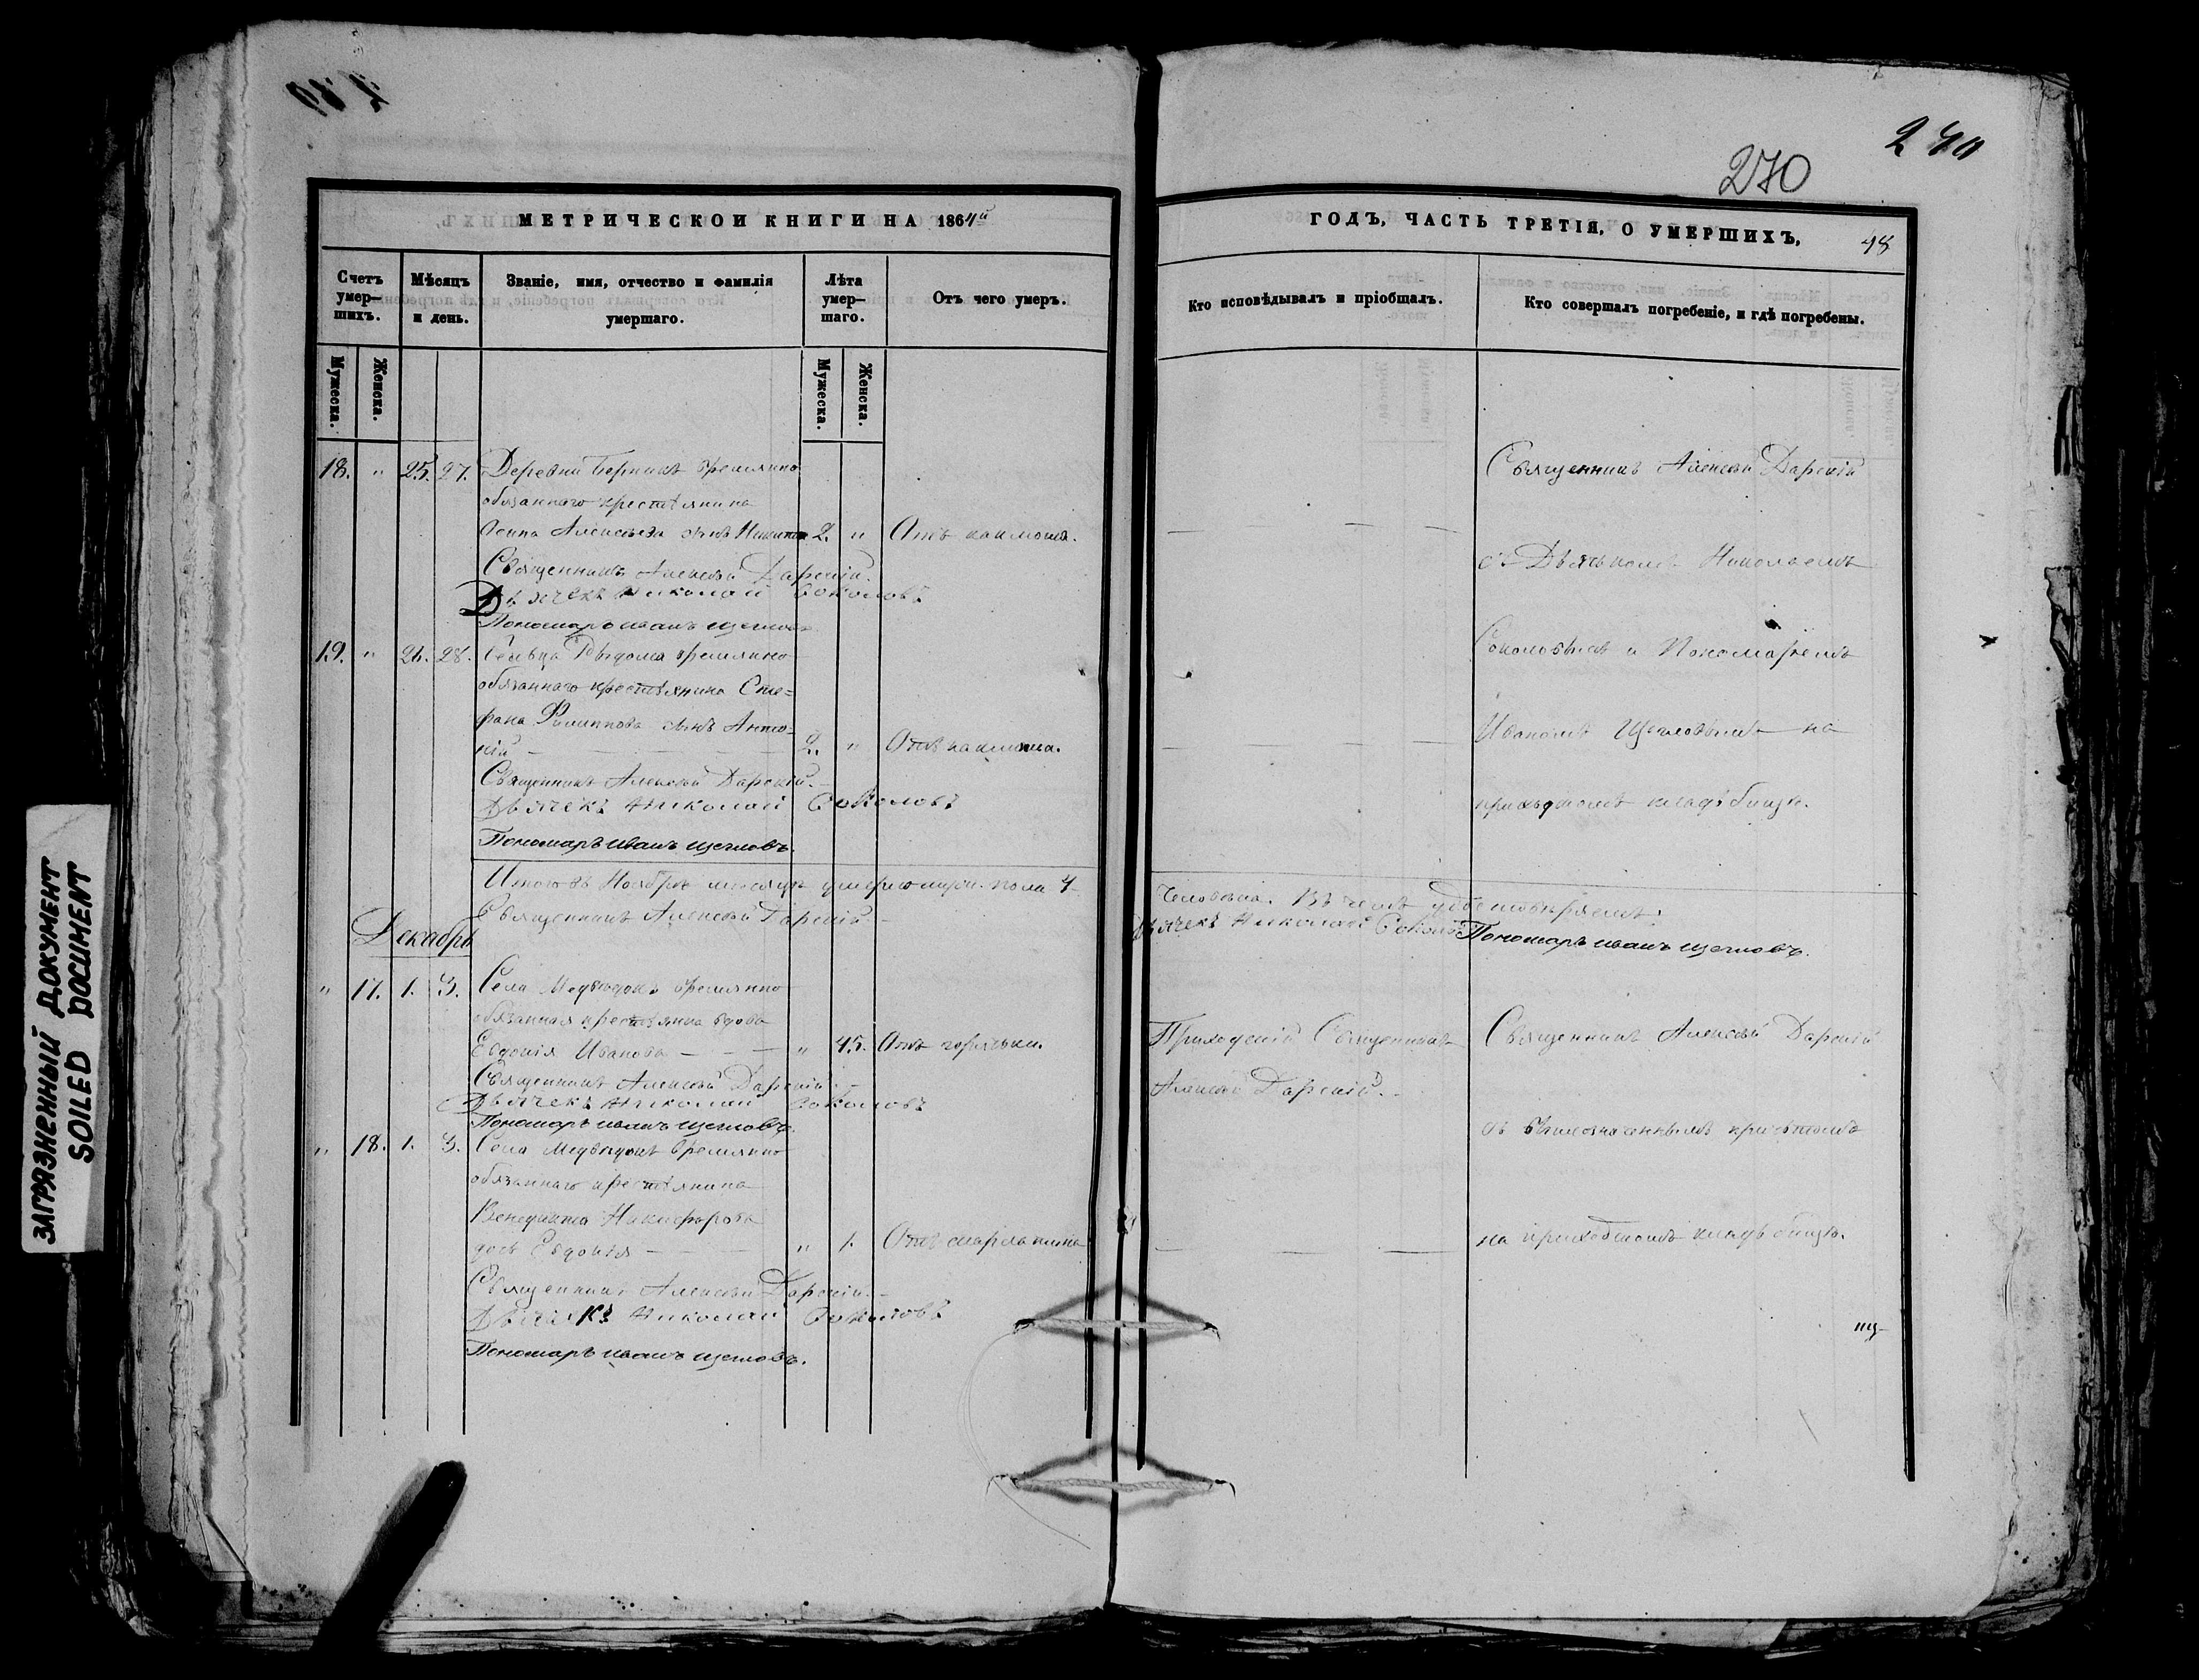 270
МЕТРИЧЕСКОЙ КНИГИ НА 1864й
ГОДЪ, ЧАСТЬ ТРЕТІЯ, О УМЕРШИХЪ,
48
Счетъ умер–шихъ.
Мѣсяцъ и день.
Званіе, имя, отчество и фамилія умершаго.
Лѣта умер–шаго.
Отъ чего умеръ.
Кто исповѣдывалъ и пріобщалъ.
Кто совершалъ погребеніе, и гдѣ погребены.
Мужеска.
Женска.
Мужеска.
Женска.
18. „ 25. 27. Деревни временно
обязаннаго крестьянина
Осипа Алексѣева сынъ Никита 2. „ Отъ кашля.
Священникъ Алексѣй Дарскій.
Дьячекъ Николай Соколовъ
Пономарь Иванъ Щегловъ
19. „ 26. 28. Сельца временно
обязаннаго крестьянина Сте=
фана Филиппова сынъ Анто=
ній 2. „ Отъ кашля.
Священникъ Алексѣй Дарскій.
Дьячекъ Николай Соколовъ
Пономарь Иванъ Щегловъ.
Итого въ Ноябрѣ месяцѣ умерло муж. пола 4
Священникъ Алексѣй Дарскій
Декабрь
„ 17. 1. 3. Села Медвѣдокъ временно
обязанная крестьянка вдова
Евдокія Иванова „ 45. Отъ горячки.
Священникъ Алексѣй Дарскій.
Дьячекъ Николай Соколовъ
Пономарь Иванъ Щегловъ.
„ 18. 1. 3. Села Медвѣдокъ временно
обязаннаго крестьянина
Венедикта Никифорова
дочь Евдокія „ 1. Отъ
Священникъ Алексѣй Дарскій.
Дьячекъ Николай Соколовъ
Пономарь Иванъ Щегловъ.
Священникъ Алексѣй Дарскій
съ Дьячкомъ Николаемъ
Соколовымъ и Пономаремъ
Иваномъ Щегловымъ на
приходскомъ кладбищѣ.
человѣка. Въ чемъ удостовѣряемъ.
Дьячекъ Николай Соколовъ Пономарь Иванъ Щегловъ.
Приходскій Священникъ
Алексѣй Дарскій.
Священникъ Алексѣй Дарскій
съ вышеозначеннымъ причтомъ
на приходскомъ кладбищѣ.
ЗАГРЯЗНЕННЫЙ ДОКУМЕНТ
SOILED DOCUMENT